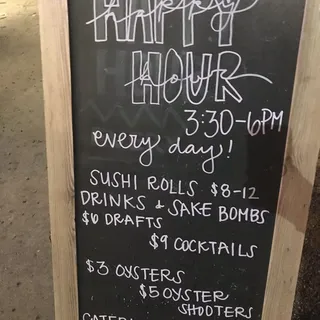 HAPPY
happy
HOUR
hour
3:30-6PM
every day!
SUSHI ROLLS $8-12
DRINKS & SAKE BOMBS
$6 DRAFTS
$9 COCKTAILS
$3 OYSTERS
$5 OYSTER
SHOOTERS